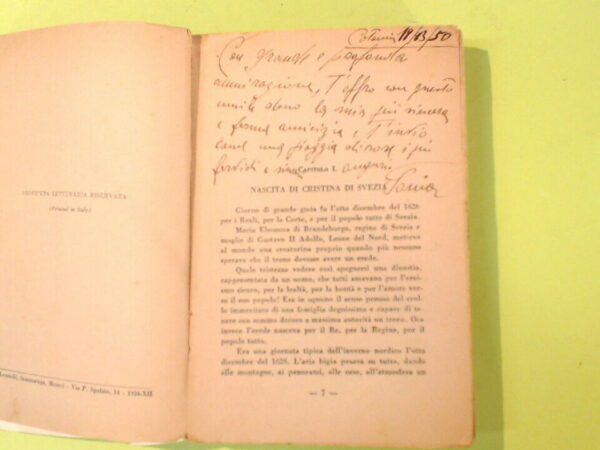 PROPRIETÀ LETTERARIA RISERVATA
(Printed in Italy)
Via P. Spelizo, 14 - 1934-XII
Catania 11/03/50
Con grande e profonda
ammirazione, T'offro con questo
umile dono la mia più sincera
e ferma amicizia e T'invio
come una pioggia di rose i più
fervidi e auguri
CAPITOLO I.
NASCITA DI CRISTINA DI SVEZIA
Giorno di grande gioia fu l'otto dicembre del 1628
per i Reali, per la Corte, e per il popolo tutto di Svezia.
Maria Eleonora di Brandeburgo, regina di Svezia e
moglie di Gustavo II Adolfo, Leone del Nord, metteva al
mondo una creaturina proprio quando più nessuno
sperava che il trono dovesse avere un erede.
Quale tristezza vedere così spegnersi una dinastia,
rappresentata da un uomo, che tutti amavano per l'eroi-
smo sicuro, per la lealtà, per la bontà e per l'amore ver-
so il suo popolo! Era in ognuno il senso penoso del crol-
lo immeritato di una famiglia degnissima e capace di tene-
re con sommo decoro e massima autorità un trono. Ora
invece l'erede nasceva per il Re, per la Regina, per il
popolo tutto.
Era una giornata tipica dell'inverno nordico l'otto
dicembre del 1628. L'aria bigia pesava su tutto, dando
alle montagne, ai panorami, alle cose, all'atmosfera un
— 7 —